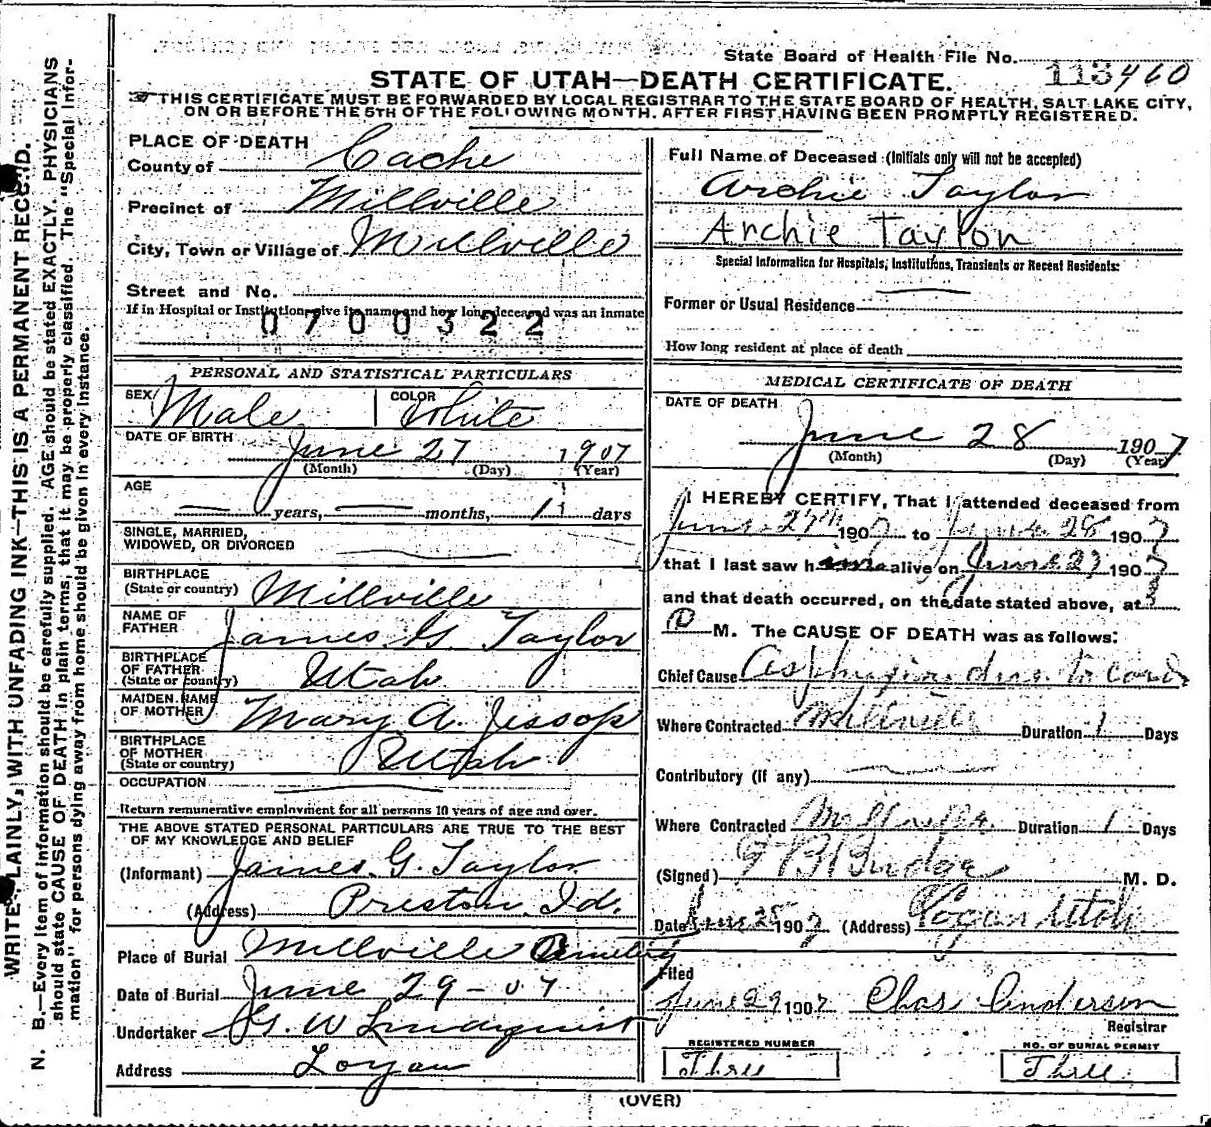 State Board of Health File No. 113460
STATE OF UTAH—DEATH CERTIFICATE.
THIS CERTIFICATE MUST BE FORWARDED BY LOCAL REGISTRAR TO THE STATE BOARD OF HEALTH, SALT LAKE CITY,
ON OR BEFORE THE 5TH OF THE FOLLOWING MONTH, AFTER FIRST HAVING BEEN PROMPTLY REGISTERED.
WRITE PLAINLY, WITH UNFADING INK—THIS IS A PERMANENT RECORD.
N. B.—Every item of information should be carefully supplied. AGE should be stated EXACTLY. PHYSICIANS
should state CAUSE OF DEATH in plain terms, that it may be properly classified. The "Special Infor-
mation" for persons dying away from home should be given in every instance.
PLACE OF DEATH
County of Cache
Precinct of Millville
City, Town or Village of Millville
Street and No.
If in Hospital or Institution give its name and how long deceased was an inmate
0700322
PERSONAL AND STATISTICAL PARTICULARS
SEX Male COLOR White
DATE OF BIRTH June 27 1907
(Month) (Day) (Year)
AGE
years, months, 1 days
SINGLE, MARRIED,
WIDOWED, OR DIVORCED
BIRTHPLACE
(State or country) Millville
NAME OF
FATHER James G. Taylor
BIRTHPLACE
OF FATHER
(State or country) Utah
MAIDEN NAME
OF MOTHER Mary A. Jessop
BIRTHPLACE
OF MOTHER
(State or country) Utah
OCCUPATION
Return remunerative employment for all persons 10 years of age and over.
THE ABOVE STATED PERSONAL PARTICULARS ARE TRUE TO THE BEST
OF MY KNOWLEDGE AND BELIEF
(Informant) James G. Taylor
(Address) Preston, Id.
Place of Burial Millville Cemetery
Date of Burial June 29-07
Undertaker W Lindquist
Address Logan
Full Name of Deceased (Initials only will not be accepted)
Archie Taylor
Archie Taylor
Special Information for Hospitals, Institutions, Transients or Recent Residents:
Former or Usual Residence
How long resident at place of death
MEDICAL CERTIFICATE OF DEATH
DATE OF DEATH
June 28 1907
(Month) (Day) (Year)
I HEREBY CERTIFY, That I attended deceased from
June 27th 1907 to June 28 1907
that I last saw him alive on June 27 1907
and that death occurred, on the date stated above, at 3
P M. The CAUSE OF DEATH was as follows:
Chief Cause due to cord
Where Contracted Millville Duration 1 Days
Contributory (if any)
Where Contracted Millville Duration 1 Days
(Signed) Budge M. D.
Date June 28 1907 (Address) Logan Utah
Filed
June 29 1907 Chas Anderson
Registrar
REGISTERED NUMBER
Three
NO. OF BURIAL PERMIT
Three
(OVER)